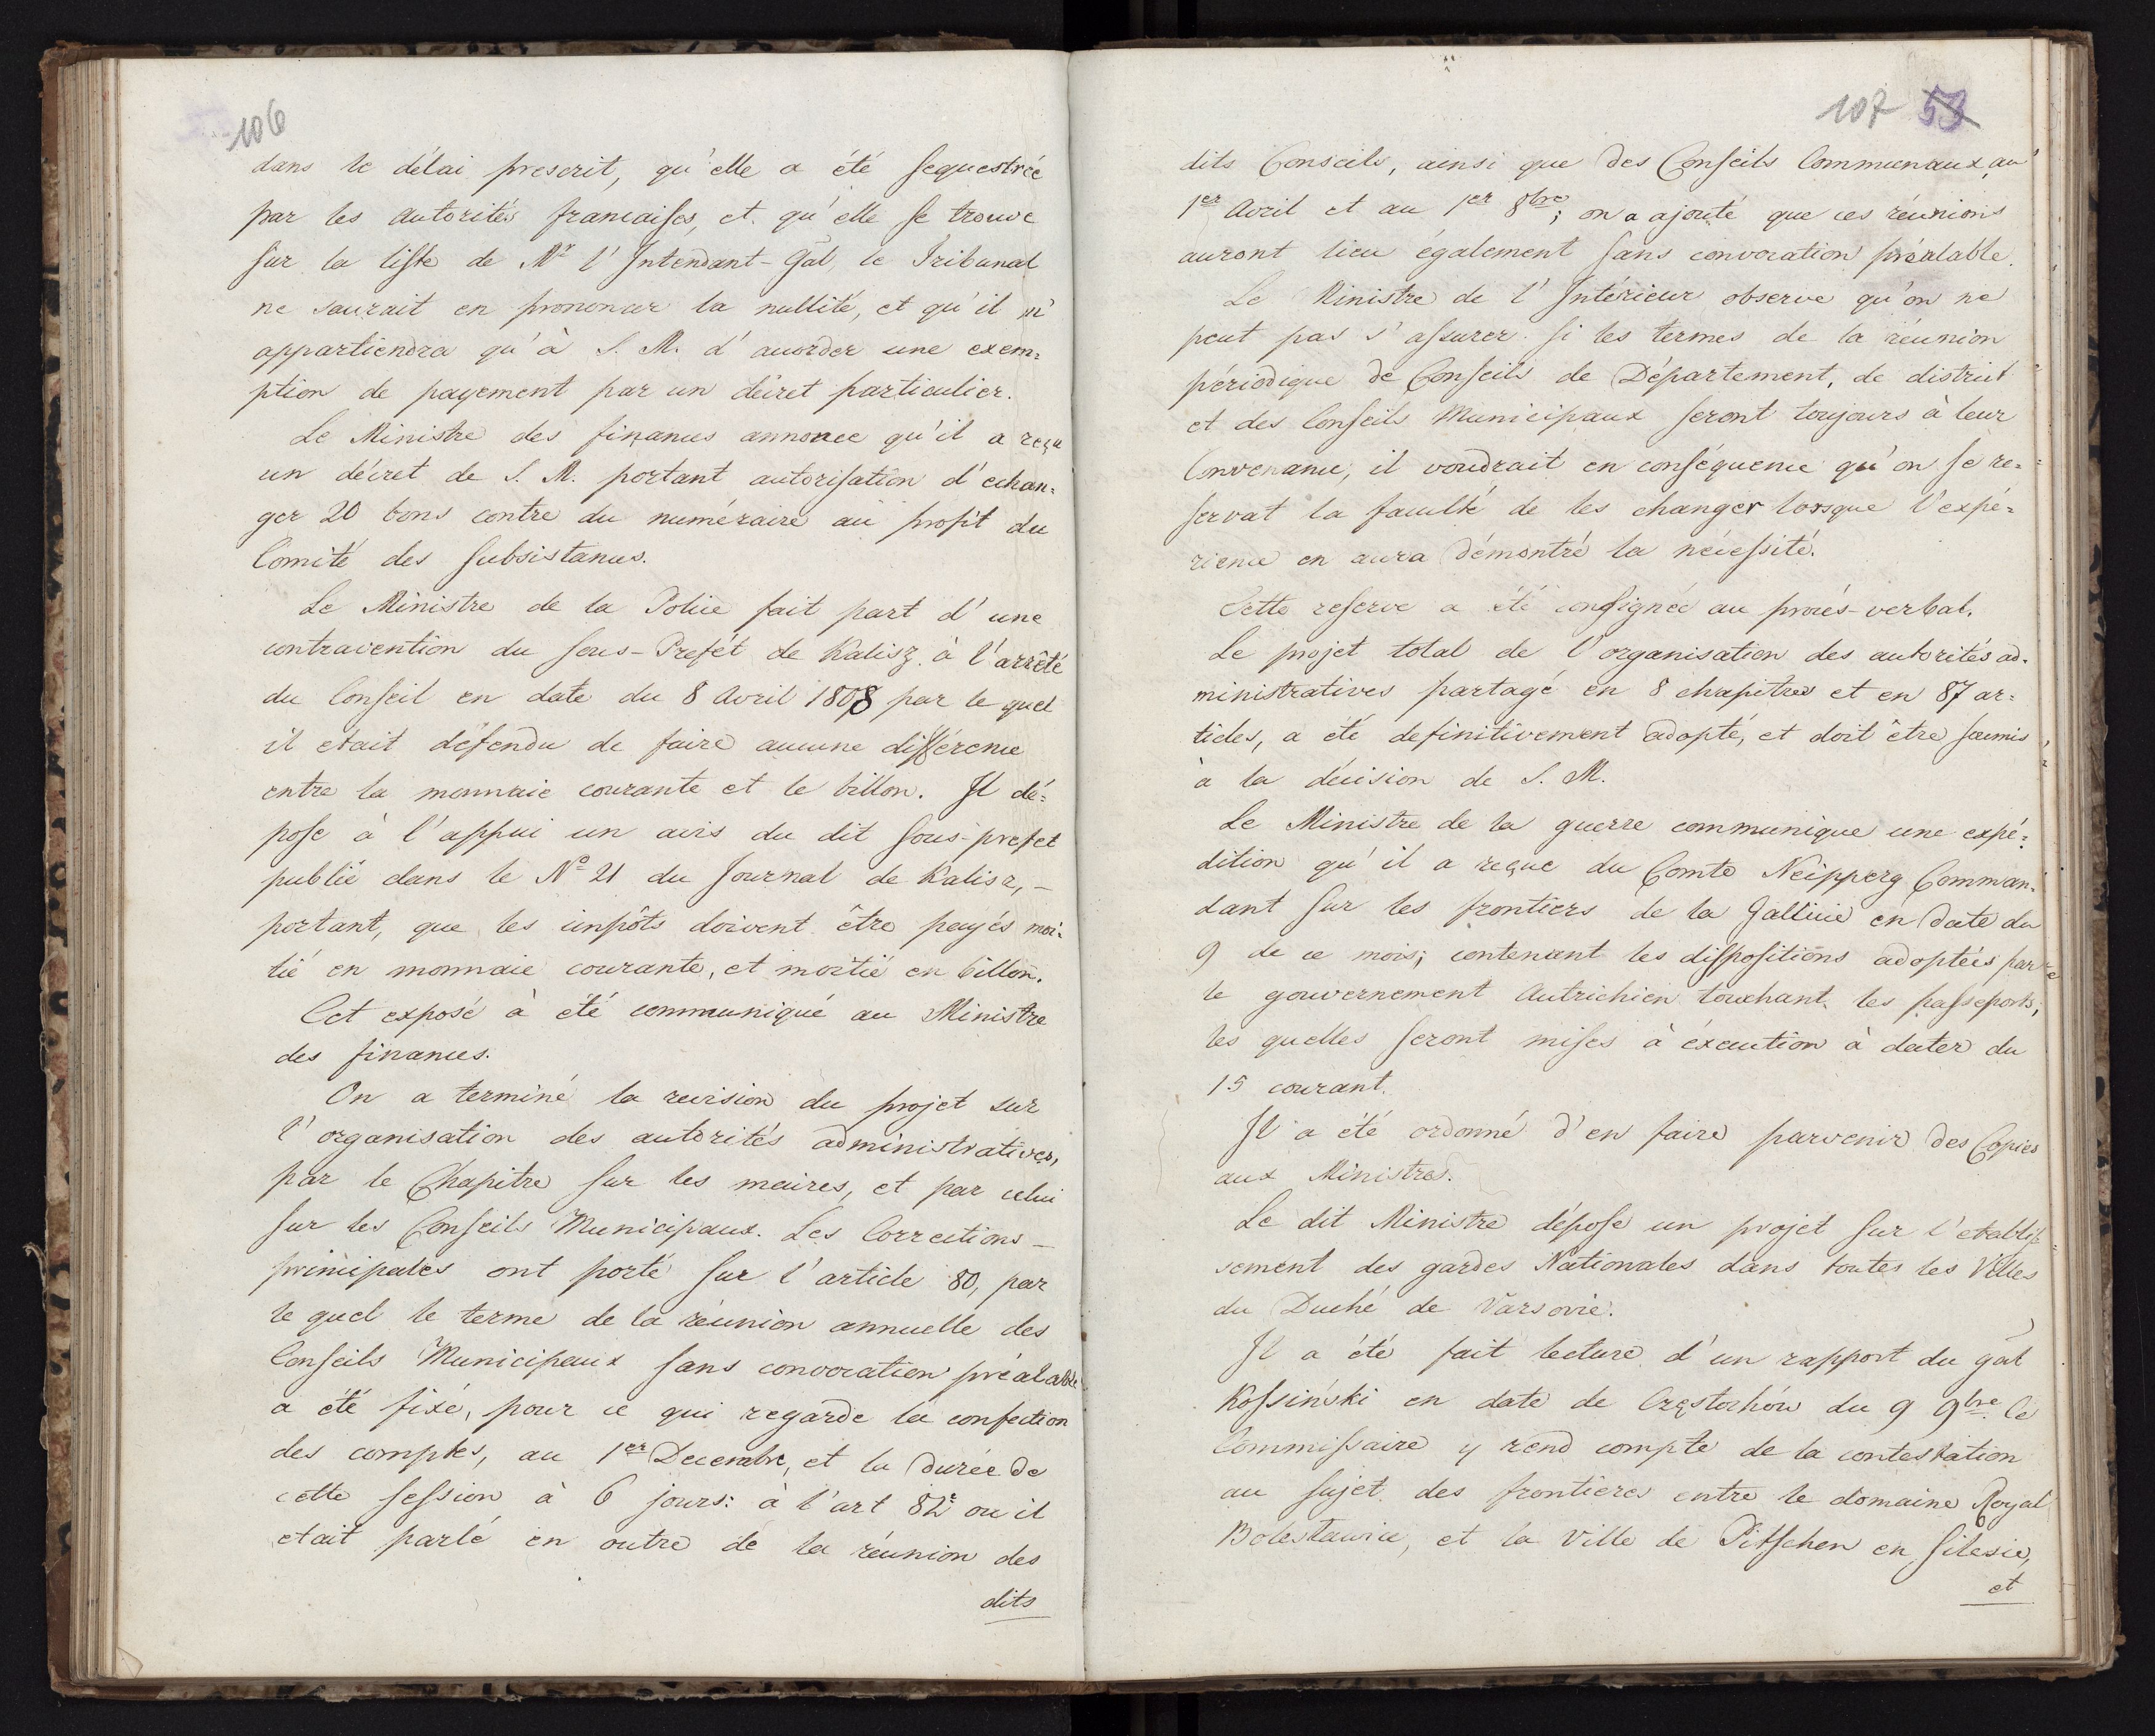 106
dans le délai prescrit, qu'elle a été sequestrée
par les autorités francaises, et qu'elle se trouve
sur la liste de Mr l'Intendant-Gal, le Tribunal
ne saurait en prononcer la nullité, et qu'il n'
appartiendra qu'à S. M. d'accorder une exem=
ption de payement par un décret particulier.
Le Ministre des finances annonce qu'il a reçu
un décret de S. M. portant autorisation d'echan=
ger 20 bons contre du numéraire au profit du
Comité des subsistances.
Le Ministre de la Police fait part d'une
contravention du sous-Prefét de Kalisz à l'arrêté
du Conseil en date du 8 Avril 1808 par le quel
il etait défendu de faire aucune différence
entre la monnaie courante et le billon. Il dé=
pose à l'appui un avis du dit sous-prefet
publié dans le No 21 du Journal de Kalisz, –
portant, que les impôts doivent être payés moi=
tié en monnaie courante, et moitié en billon.
Cet exposé à été communiqué au Ministre
des finances.
On a terminé la revision du projet sur
l'organisation des autorités administratives,
par le Chapitre sur les maires, et par celui
sur les Conseils Municipaux. Les Corrections –
principales ont porté sur l'article 80, par
le quel le terme de la réunion annuelle des
Conseils Municipaux sans convocation préalable
a été fixé, pour ce qui regarde la confection
des comptes, au 1er Decembre, et la durée de
cette session à 6 jours: à l'art 82e ou il
etait parlé en outre de la réunion des
dits
107 53
dits Conseils, ainsi que des Conseils Communaux, au
1er Avril et au 1er 8bre; on a ajouté que ces réunions
auront lieu également sans convocation préalable.
Le Ministre de l'Intérieur observe qu'on ne
peut pas s'assurer si les termes de la réunion
périodique de Conseils de Département, de district
et des Conseils Municipaux seront toujours à leur
Convenance, il voudrait en conséquence qu'on se re=
servat la faculté de les changer lorsque l'expé=
rience en aura démontré la nécessité.
Cette reserve a été consignée au procés-verbal.
Le projet total de l'organisation des autorités ad=
ministratives partagé en 8 chapitres et en 87 ar=
ticles, a été definitivement adopté, et doit être soumis
à la décision de S. M.
Le Ministre de la guerre communique une expé=
dition qu'il a reçue du Comte Neipperg Comman=
dant sur les frontiers de la Gallicie en date du
9 de ce mois; contenant les dispositions adoptées par
le gouvernement Autrichien touchant les passeports;
les quelles seront mises à éxecution à dater du
15 courant.
Il a été ordonné d'en faire parvenir des Copies
aux Ministres.
Le dit Ministre dépose un projet sur l'etablis=
sement des gardes Nationales dans toutes les Villes
du Duché de Varsovie.
Il a été fait lecture d'un rapport du gal
Kossiński en date de Czestochów du 9 9bre. Ce
Commissaire y rend compte de la contestation
au sujet des frontiéres entre le domaine Royal
Bolesławice, et la Ville de Pitschen en Silesie,
et